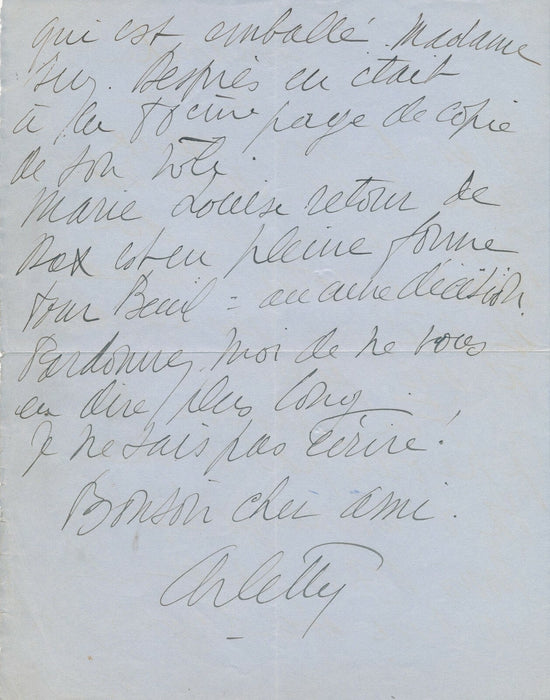 qui est emballé. Madame
Suz. Desprès en était
à la 80ème page de copie
de son rôle.
Marie Louise retour de
Dax est en pleine forme
Pour Beuil = aucune décision.
Pardonnez moi de ne vous
en dire plus long.
Je ne sais pas écrire!
Bonsoir cher ami.
Arletty